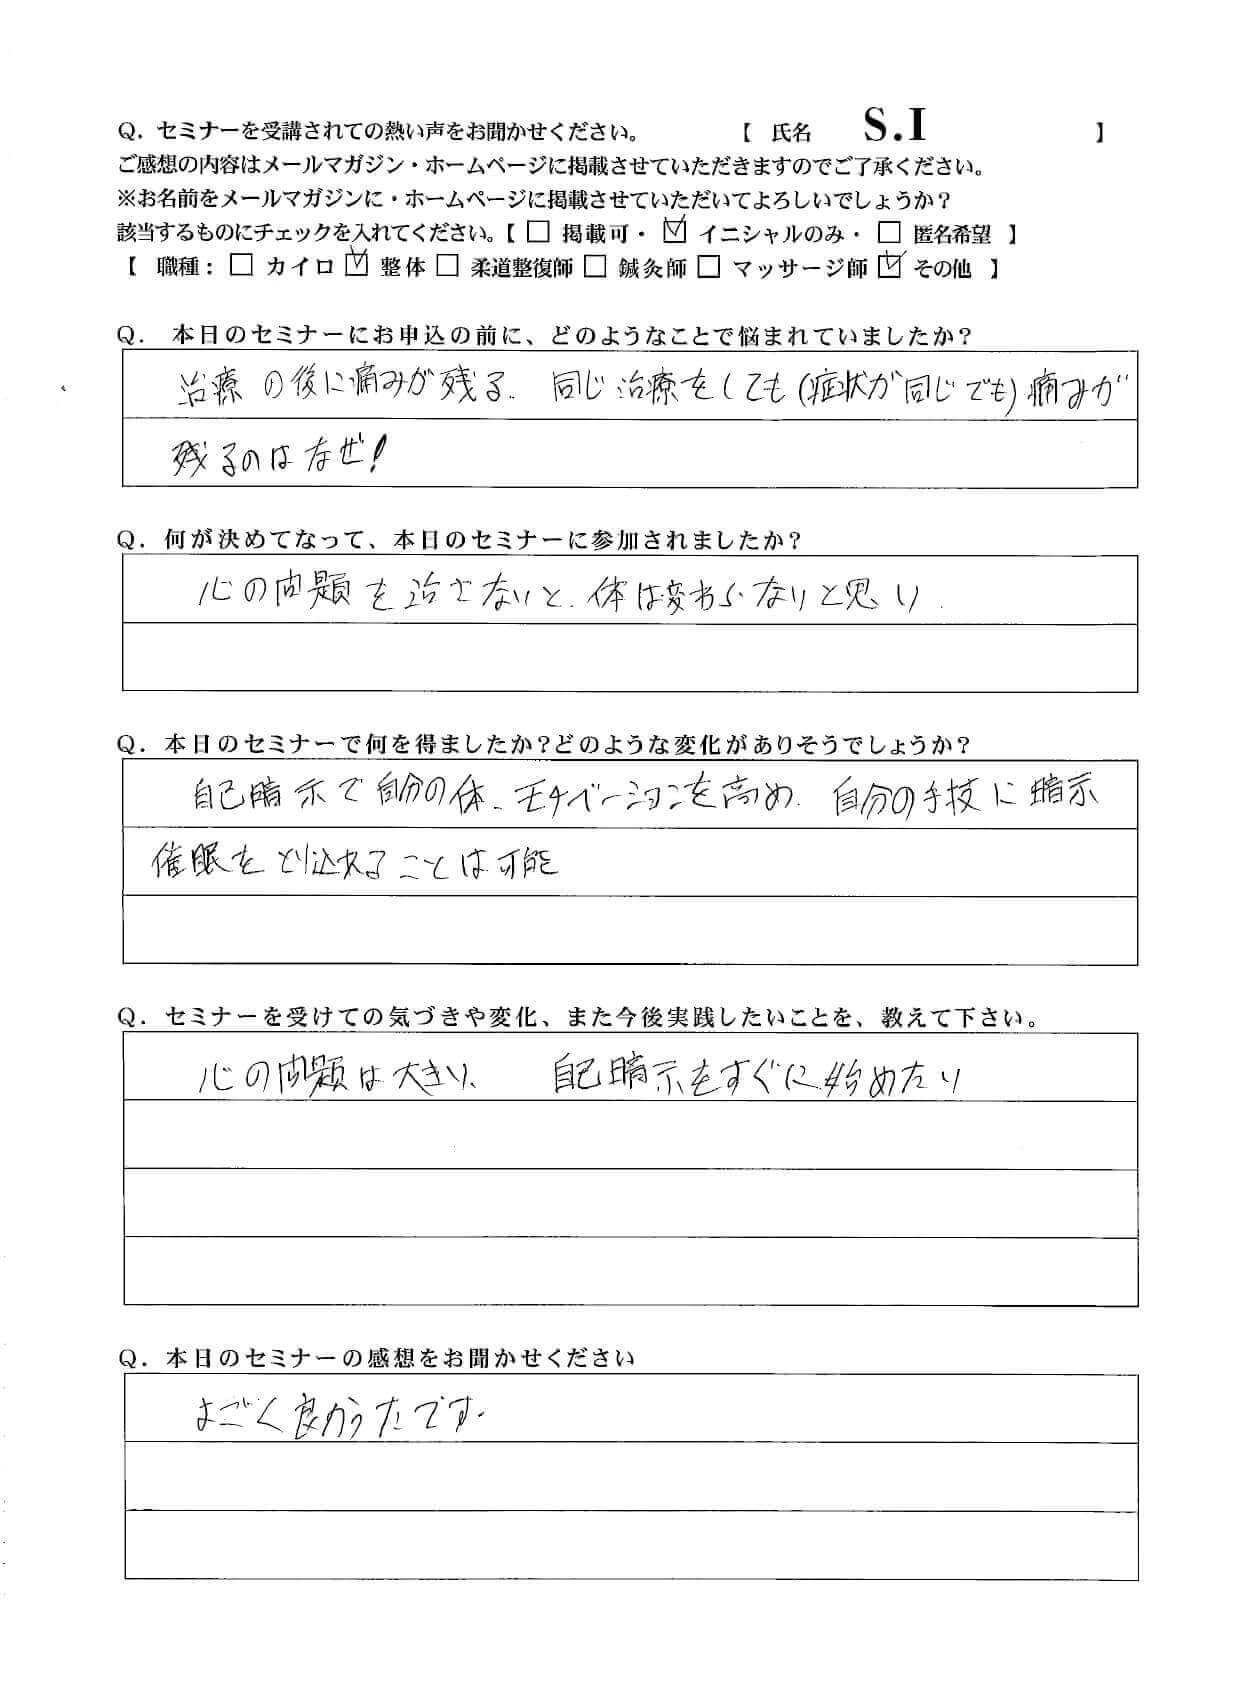 Q. セミナーを受講されての熱い声をお聞かせください。 【 氏名 S.I 】
ご感想の内容はメールマガジン・ホームページに掲載させていただきますのでご了承ください。
※お名前をメールマガジンに・ホームページに掲載させていただいてよろしいでしょうか？
該当するものにチェックを入れてください。【 □ 掲載可・ ☑ イニシャルのみ・ □ 匿名希望 】
【 職種： □ カイロ ☑ 整体 □ 柔道整復師 □ 鍼灸師 □ マッサージ師 ☑ その他 】
Q. 本日のセミナーにお申込の前に、どのようなことで悩まれていましたか？
治療の後に痛みが残る. 同じ治療をしても(症状が同じでも)痛みが
残るのはなぜ!
Q. 何が決めてなって、本日のセミナーに参加されましたか？
心の問題を治さないと、体は変わらないと思い.
Q. 本日のセミナーで何を得ましたか？どのような変化がありそうでしょうか？
自己暗示で自分の体、モチベーションを高め、自分の手技に暗示
催眠をとり込れることは可能
Q. セミナーを受けての気づきや変化、また今後実践したいことを、教えて下さい。
心の問題は大きい、 自己暗示をすぐに始めたい
Q. 本日のセミナーの感想をお聞かせください
すごく良かったです.